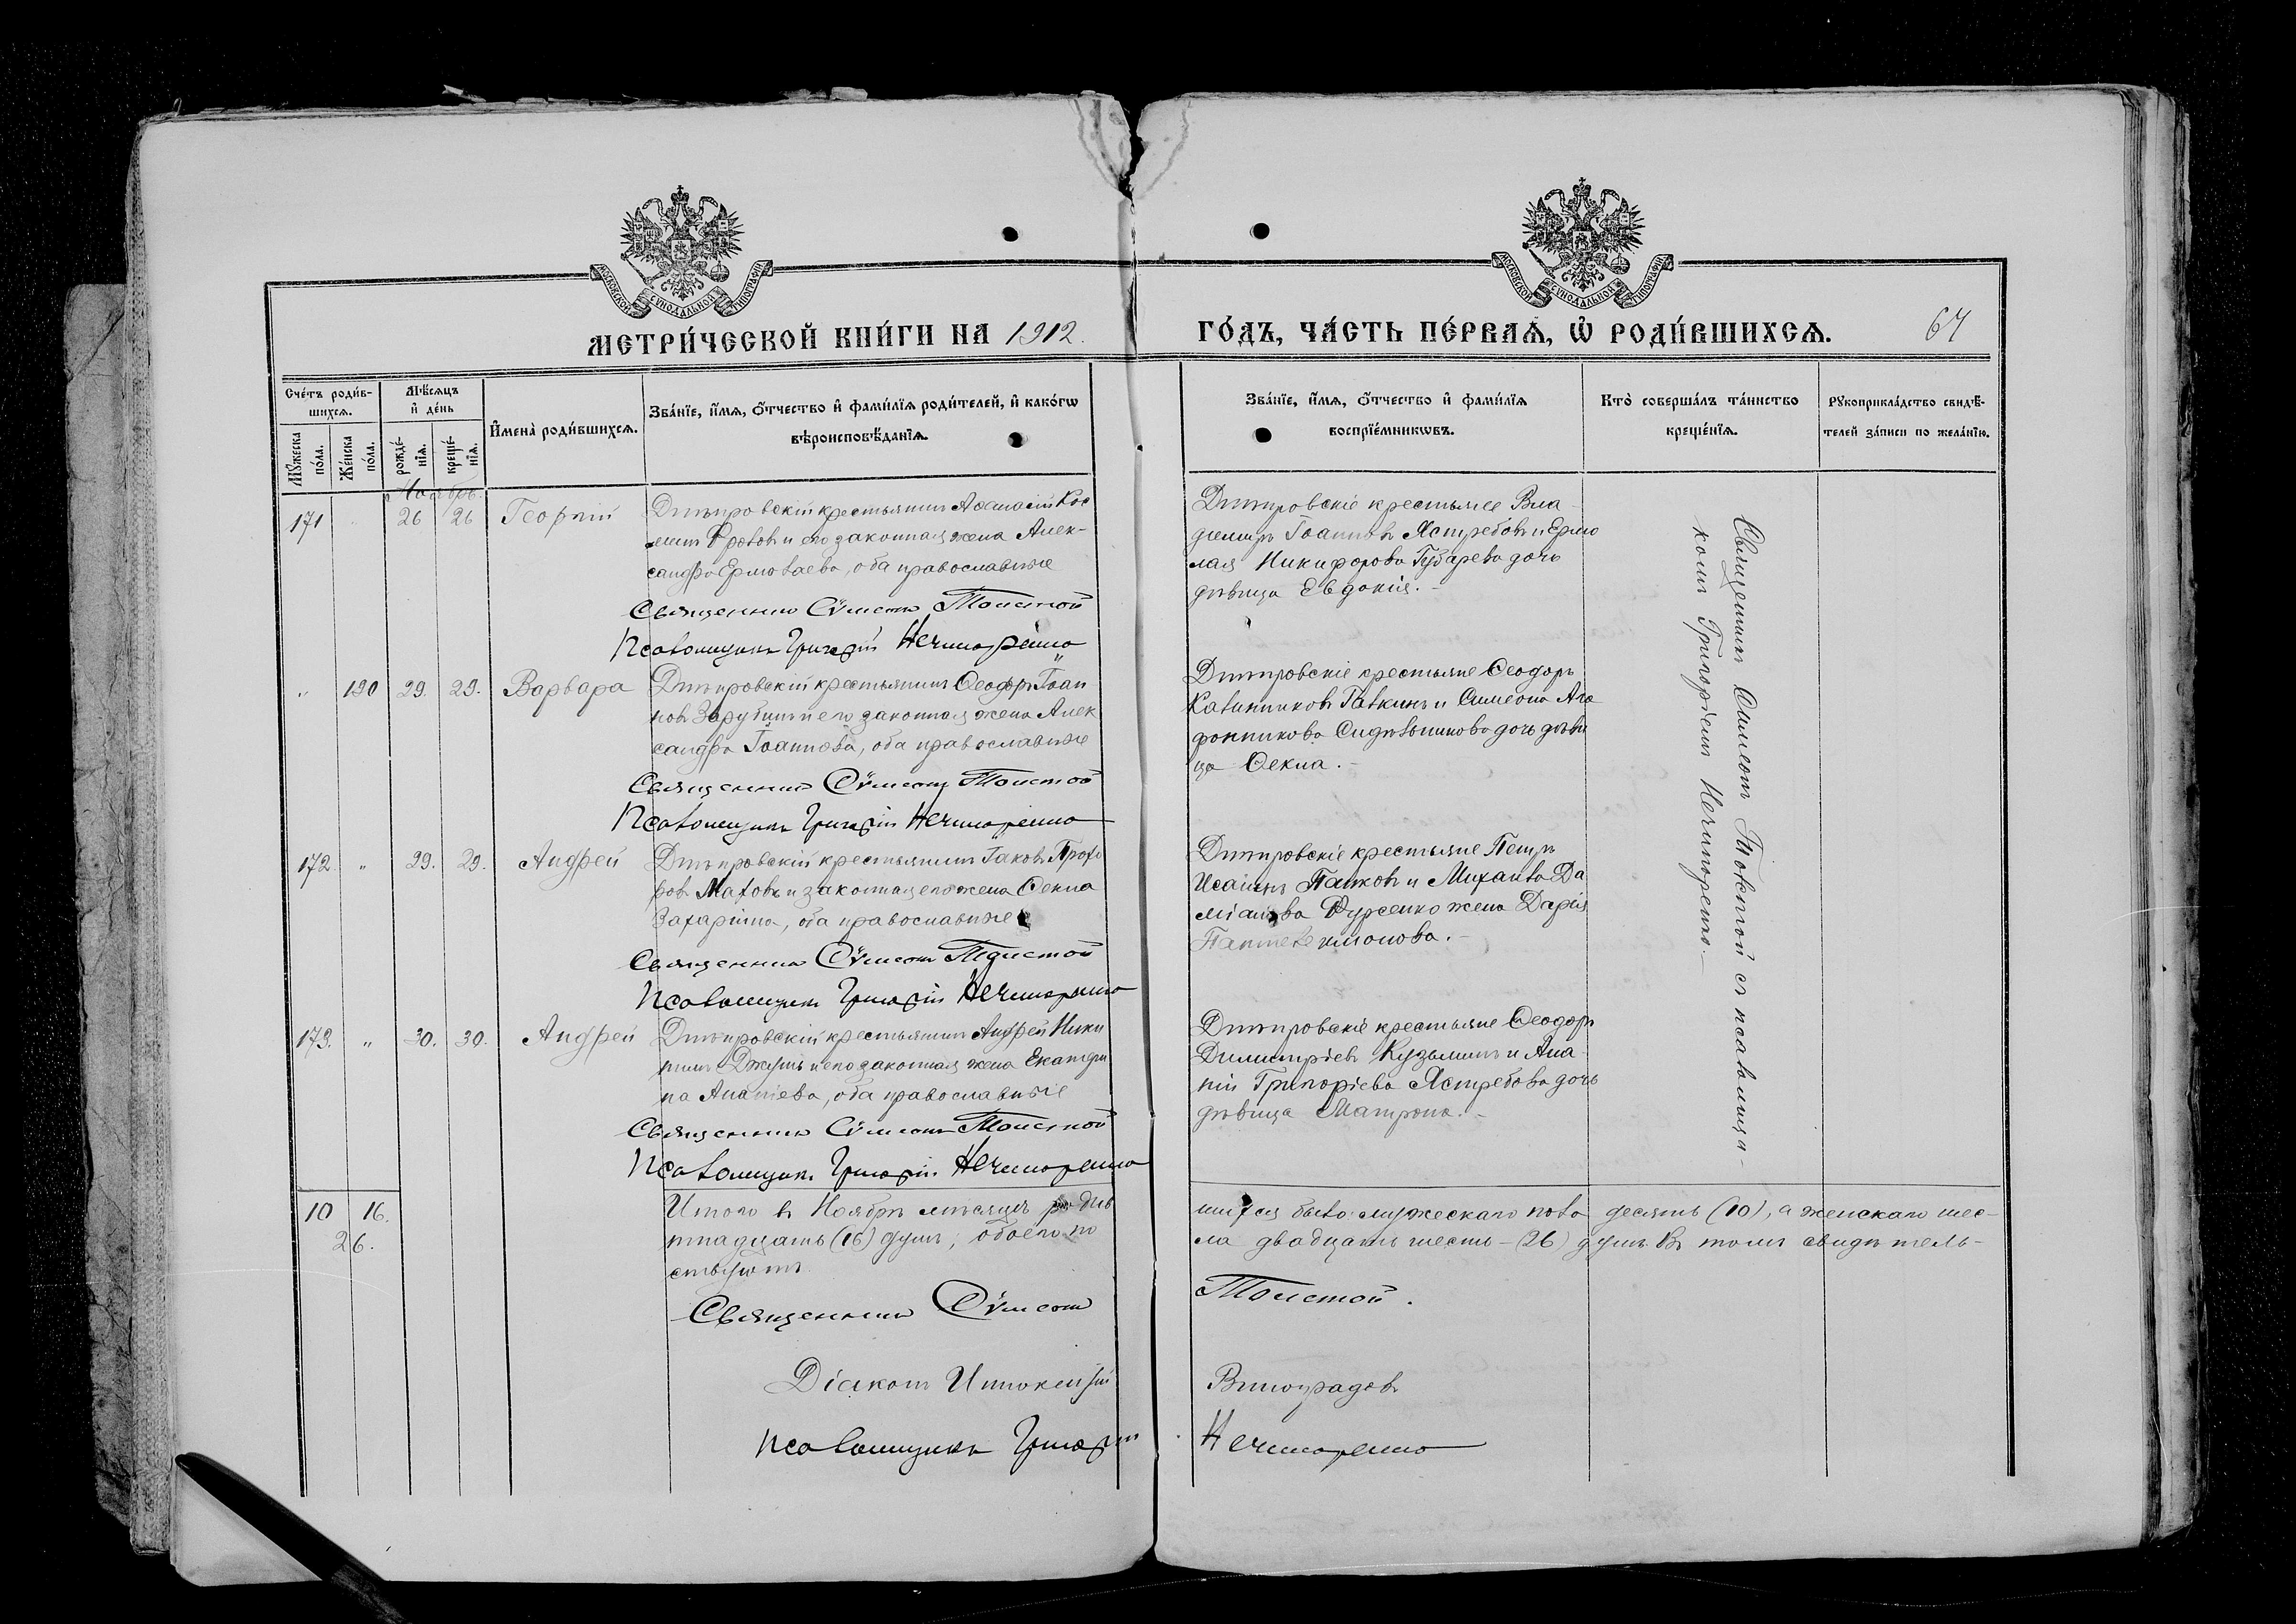 МОСКОВСКОЙ СУНОДАЛЬНОЙ ТИПОГРАФІИ
МОСКОВСКОЙ СУНОДАЛЬНОЙ ТИПОГРАФІИ
МЕТРИ́ЧЕСКОЙ КНИ́ГИ НА 1912.
ГО́ДЪ, ЧА́СТЬ ПЕ́РВАѦ, Ѡ РОДИ́ВШИХСѦ.
64
Сче́тъ роди́в-
шихсѧ.
Мѣ́сѧцъ
и҆ де́нь
Мꙋ́жеска
по́ла.
Же́нска
по́ла.
рожде́-
нїѧ.
креще́-
нїѧ.
И҆мена̀ роди́вшихсѧ.
Зва́нїе, и҆́мѧ, ѻ҆́тчество и҆ фами́лїѧ роди́телей, и҆ како́гѡ
вѣроисповѣ́данїѧ.
Зва́нїе, и҆́мѧ, ѻ҆́тчество и҆ фами́лїѧ
воспрїе́мникѡвъ.
Кто̀ соверша́лъ та́инство
креще́нїѧ.
Рꙋкоприкла́дство свидѣ́-
телей за́писи по жела́нїю.
Ноябрь.
171 26 26 Георгій
Днѣпровскій крестьянинъ Аѳанасій Кос
минъ Фроловъ и его законная жена Алек-
сандра Ермолаева, оба православные
Священникъ Сѵмеонъ Толстой
Псаломщикъ Григорій Нечипоренко
Днѣпровскіе крестьяне Вла-
диміръ Іоанновъ Ястребовъ и Ермо
лая Никифорова Губарева дочь
дѣвица Евдокія.-
" 190 29. 29. Варвара
Днѣпровскій крестьянинъ Ѳеодоръ Іоан
новъ Зарубинъ и его законная жена Алек
сандра Іоаннова, оба православные
Священникъ Сѵмеонъ Толстой
Псаломщикъ Григорій Нечипоренко
Днѣпровскіе крестьяне Ѳеодоръ
Калинниковъ Галкинъ и Симеона Ага
фонникова Сидѣльникова дочь дѣви
ца Ѳекла.-
172. " 29. 29. Андрей
Днѣпровскій крестьянинъ Іаковъ Прохо
ровъ Маховъ и законная его жена Ѳекла
Захаріина, оба православные
Священникъ Сѵмеонъ Толстой
Псаломщикъ Григорій Нечипоренко
Днѣпровскіе крестьяне Петръ
Исаинъ Палковъ и Михаила Да
міанова Фурсенко жена Дарія
Пантелеимонова.-
173. " 30. 30. Андрей
Днѣпровскій крестьянинъ Андрей Ники
тинъ и его законная жена Екатери
на Ананіева, оба православные
Священникъ Сѵмеонъ Толстой
Псаломщикъ Григорій Нечипоренко
Днѣпровскіе крестьяне Ѳеодоръ
Димитріевъ Кузьминъ и Ана-
ніи Григоріева Ястребова дочь
дѣвица Матрона.-
Священникъ Симеонъ Толстой съ псаломщи-
комъ Григоріемъ Нечипоренко.-
10 16.
26.
Итого въ Ноябрѣ мѣсяцѣ родив
шихся было: мужескаго пола десять (10), а женскаго шес-
тнадцать (16) душъ; обоего по
ла двадцать шесть-(26) душъ. Въ томъ свидѣтель-
ствуютъ
Священникъ Сѵмеонъ Толстой.
Діаконъ Иннокентій Виноградовъ
Псаломщикъ Григорій Нечипоренко